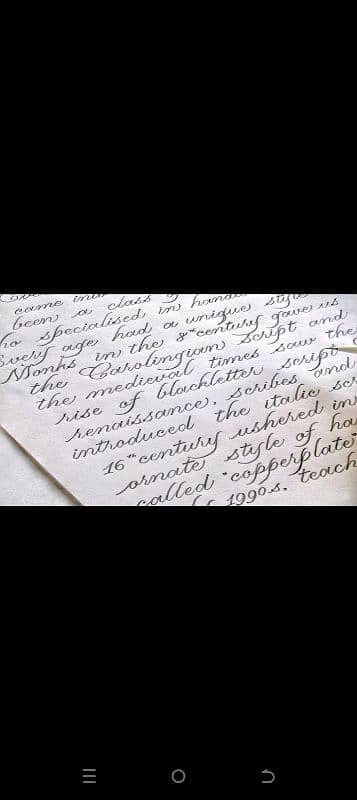 came
been a class
specialised in
Every age had a unique
Monks in the 8th century gave us
the Carolingian Script and
the medieval times saw the
rise of blackletter script
renaissance, scribes and
introduced the italic
16th century ushered in
ornate style of
called "copperplate
1990s. teach